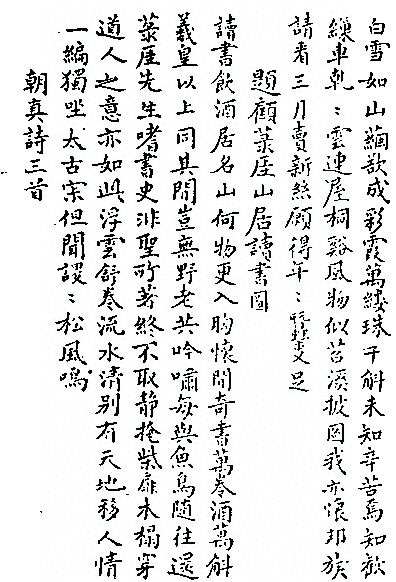 白雪如山繭欲成彩霞萬縷珠千斛未知辛苦焉知歡
繰車軋〻雲連屋桐谿風物似苕溪披圖我亦懷邦族
請看三月賣新絲願得年〻 足
題顧菉厓山居讀書圖
讀書飲酒居名山何物更入胸懷間奇書萬卷酒萬斛
羲皇以上同其閒豈無野老共吟嘯每與魚鳥隨往還
菉厓先生嗜書史非聖所著終不取静掩柴扉木榻穿
道人之意亦如此浮雲舒卷流水清別有天地移人情
一編獨坐太古宗但聞謖〻松風鳴
朝真詩三首